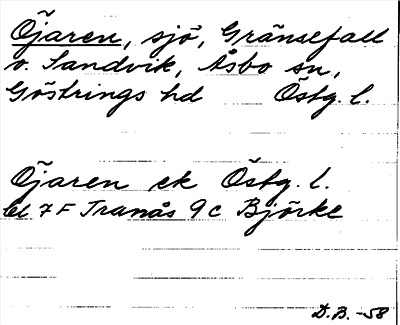 Öjaren, sjö, Gränsefall
o. Sandvik, Åsbo sn,
Göstrings hd Östg. l.
Öjaren ek Östg. l.
bl 7 F Tranås 9 c Björke
D.B. -58